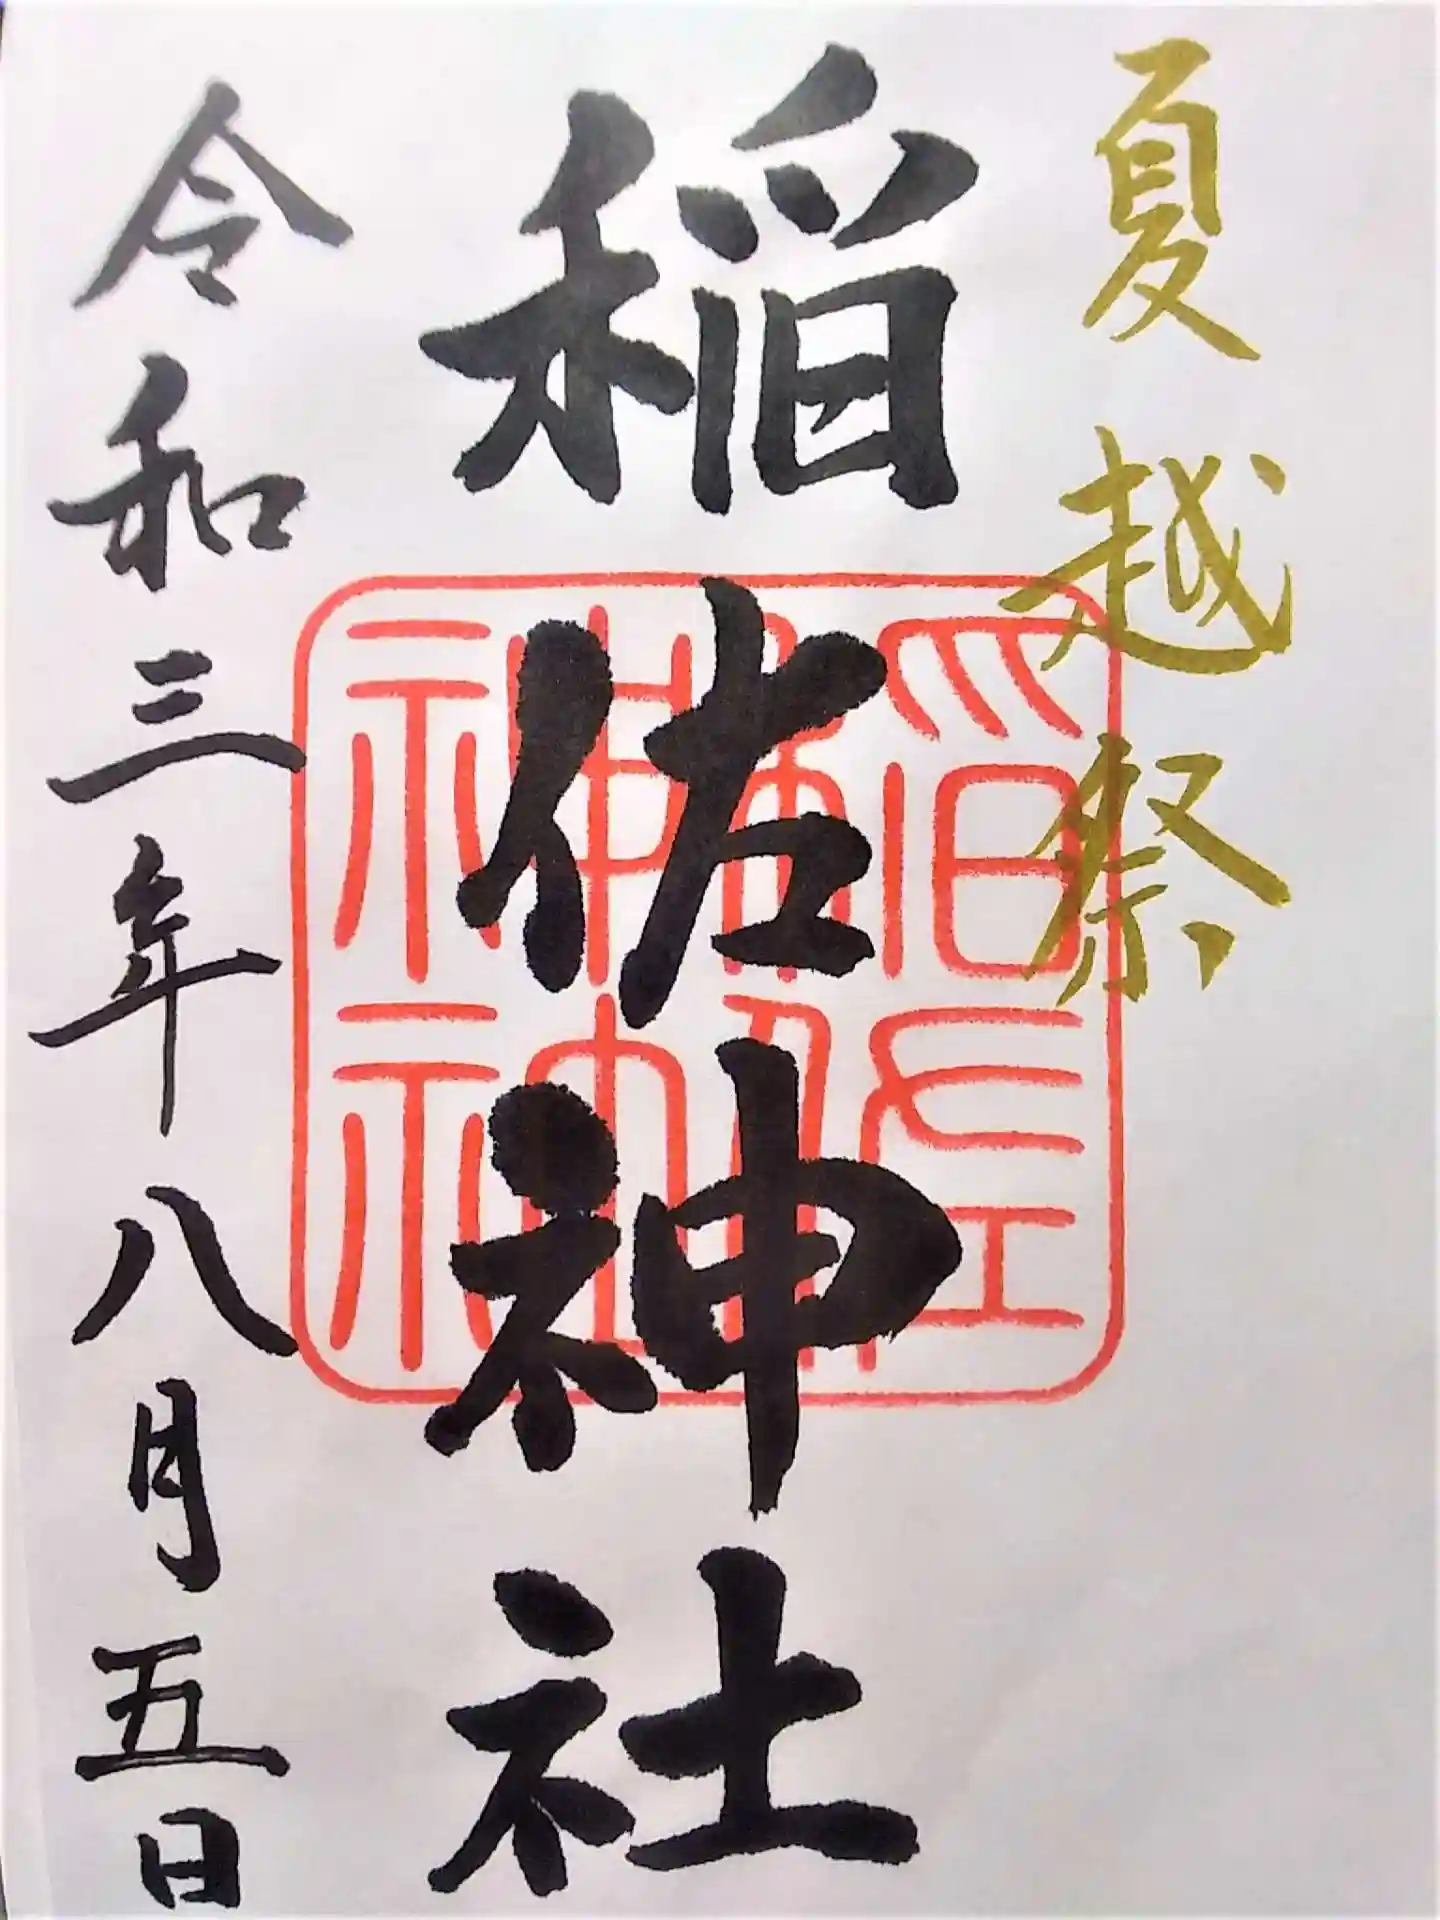 夏越祭
稲佐神社
稲佐神社
令和三年八月五日